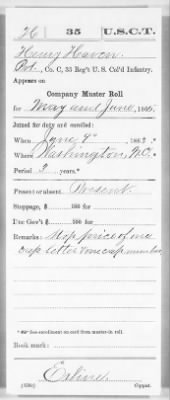 H 35 U.S.C.T.
Henry Haven
Pvt., Co. C, 35 Reg't U. S. Col'd Infantry.
Appears on
Company Muster Roll
for May and June, 1865.
Joined for duty and enrolled:
When June 9, 1863.
Where Washington, N.C.
Period 3 years.*
Present or absent Present
Stoppage, $ 100 for
Due Gov't $ 100 for
Remarks: Stop price of one
cap letter & one cap number
* See enrollment on card from muster-in roll.
Book mark:
Copyist.